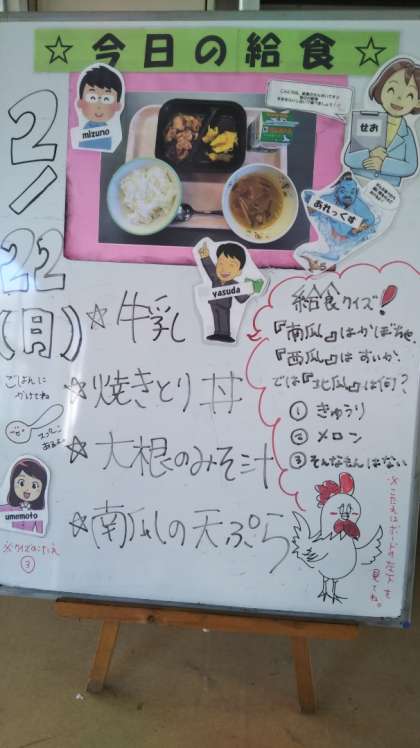 ☆今日の給食☆
mizuno
せお
あれっくす
yasuda
2/22(月)
☆牛乳
☆焼きとり丼
☆大根のみそ汁
☆南瓜の天ぷら
ごはんに
かけてね
umemoto
※クイズのこたえ
③
給食クイズ!
『南瓜』はかぼちゃ、
『西瓜』はすいか、
では『北瓜』は何?
①きゅうり
②メロン
③そんなもんはない
※こたえはボードの左下を見てね。